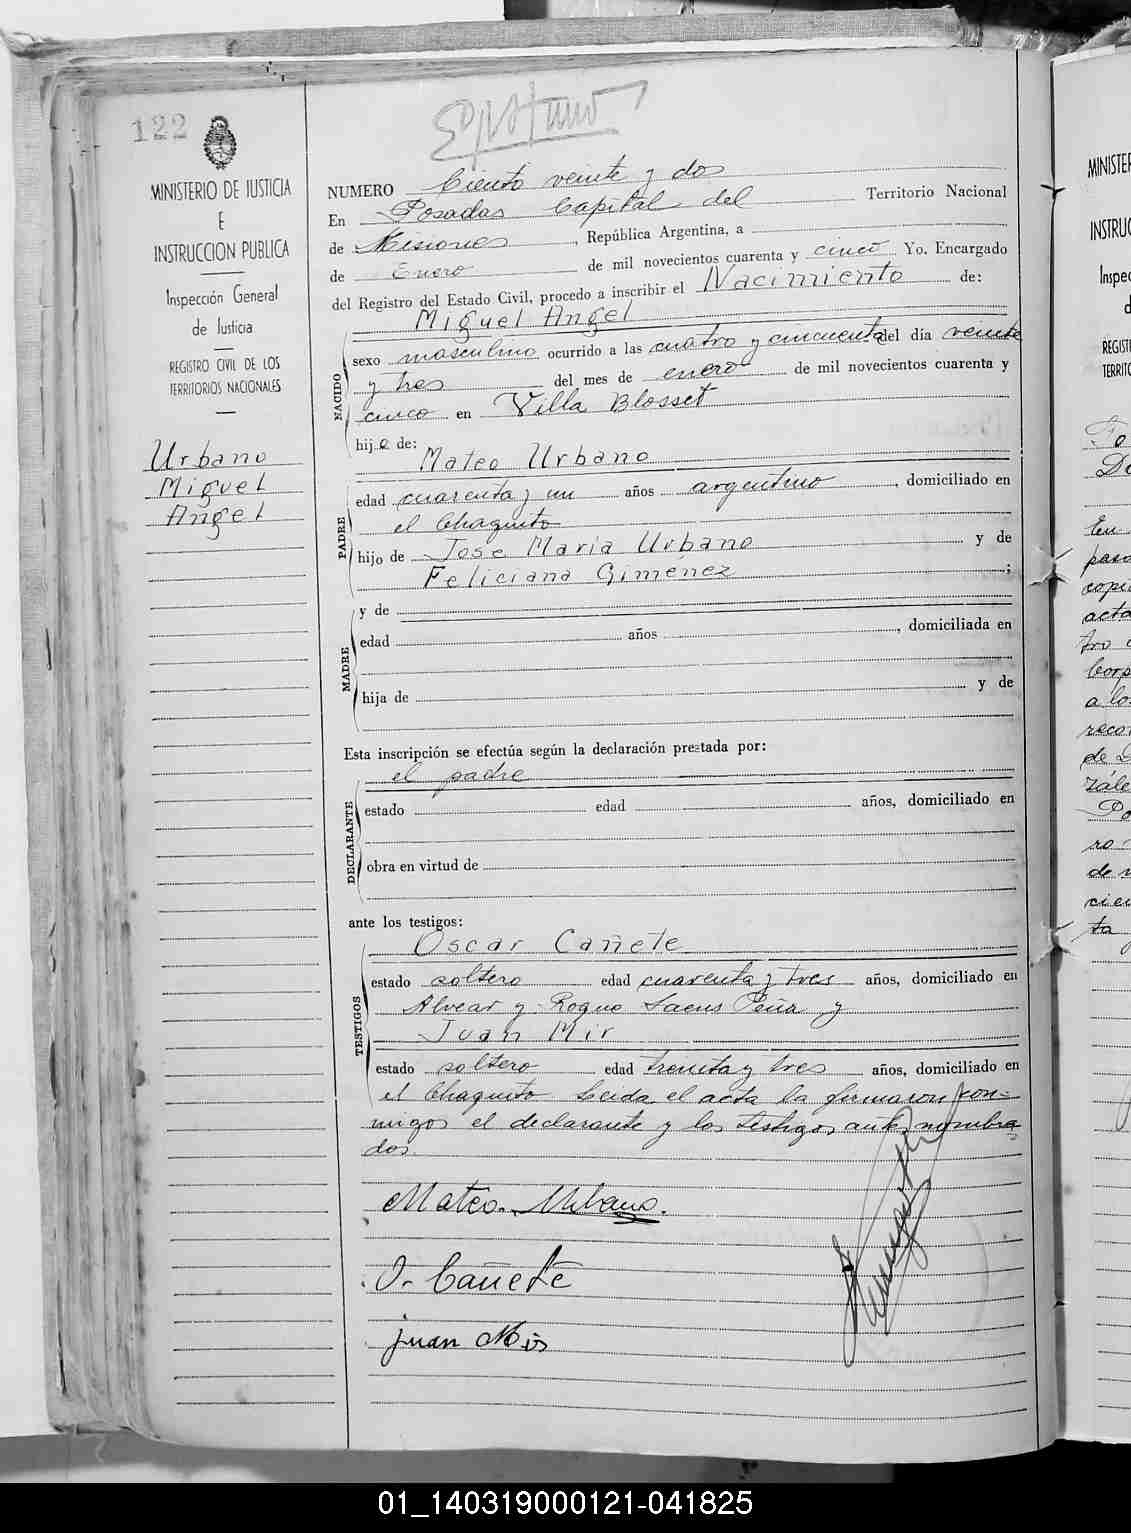 122
MINISTERIO DE JUSTICIA
E
INSTRUCCION PUBLICA
Inspección General
de Justicia
REGISTRO CIVIL DE LOS
TERRITORIOS NACIONALES
Urbano
Miguel
Angel
NUMERO Ciento veinte y dos
En Posadas Capital del Territorio Nacional
de Misiones, República Argentina, a
de Enero de mil novecientos cuarenta y cinco Yo. Encargado
del Registro del Estado Civil, procedo a inscribir el Nacimiento de:
NACIDO
Miguel Angel
sexo masculino ocurrido a las cuatro y cincuenta del día veinte
y tres del mes de enero de mil novecientos cuarenta y
cinco en Villa Blosset
hijo de:
PADRE
Mateo Urbano
edad cuarenta y un años argentino, domiciliado en
el Chaquito
hijo de Jose Maria Urbano y de
Feliciana Gimenez;
MADRE
y de
edad años, domiciliada en
hija de y de
Esta inscripción se efectúa según la declaración prestada por:
DECLARANTE
el padre
estado edad años, domiciliado en
obra en virtud de
ante los testigos:
TESTIGOS
Oscar Cañete
estado soltero edad cuarenta y tres años, domiciliado en
Alvear y Roque Saens Peña y
Juan Mir
estado soltero edad treinta y tres años, domiciliado en
el Chaquito Leida el acta la firmaron con=
migo, el declarante y los testigos antes nombra
dos.
Mateo. Urbano.
O. Cañete
juan Mir
MINISTER
INSTRUC
Inspec
d
REGISTR
TERRITO
En
paso
copi
acta
tro
a los
reco
de
zále
Po
ro
de
cien
ta
01_140319000121-041825